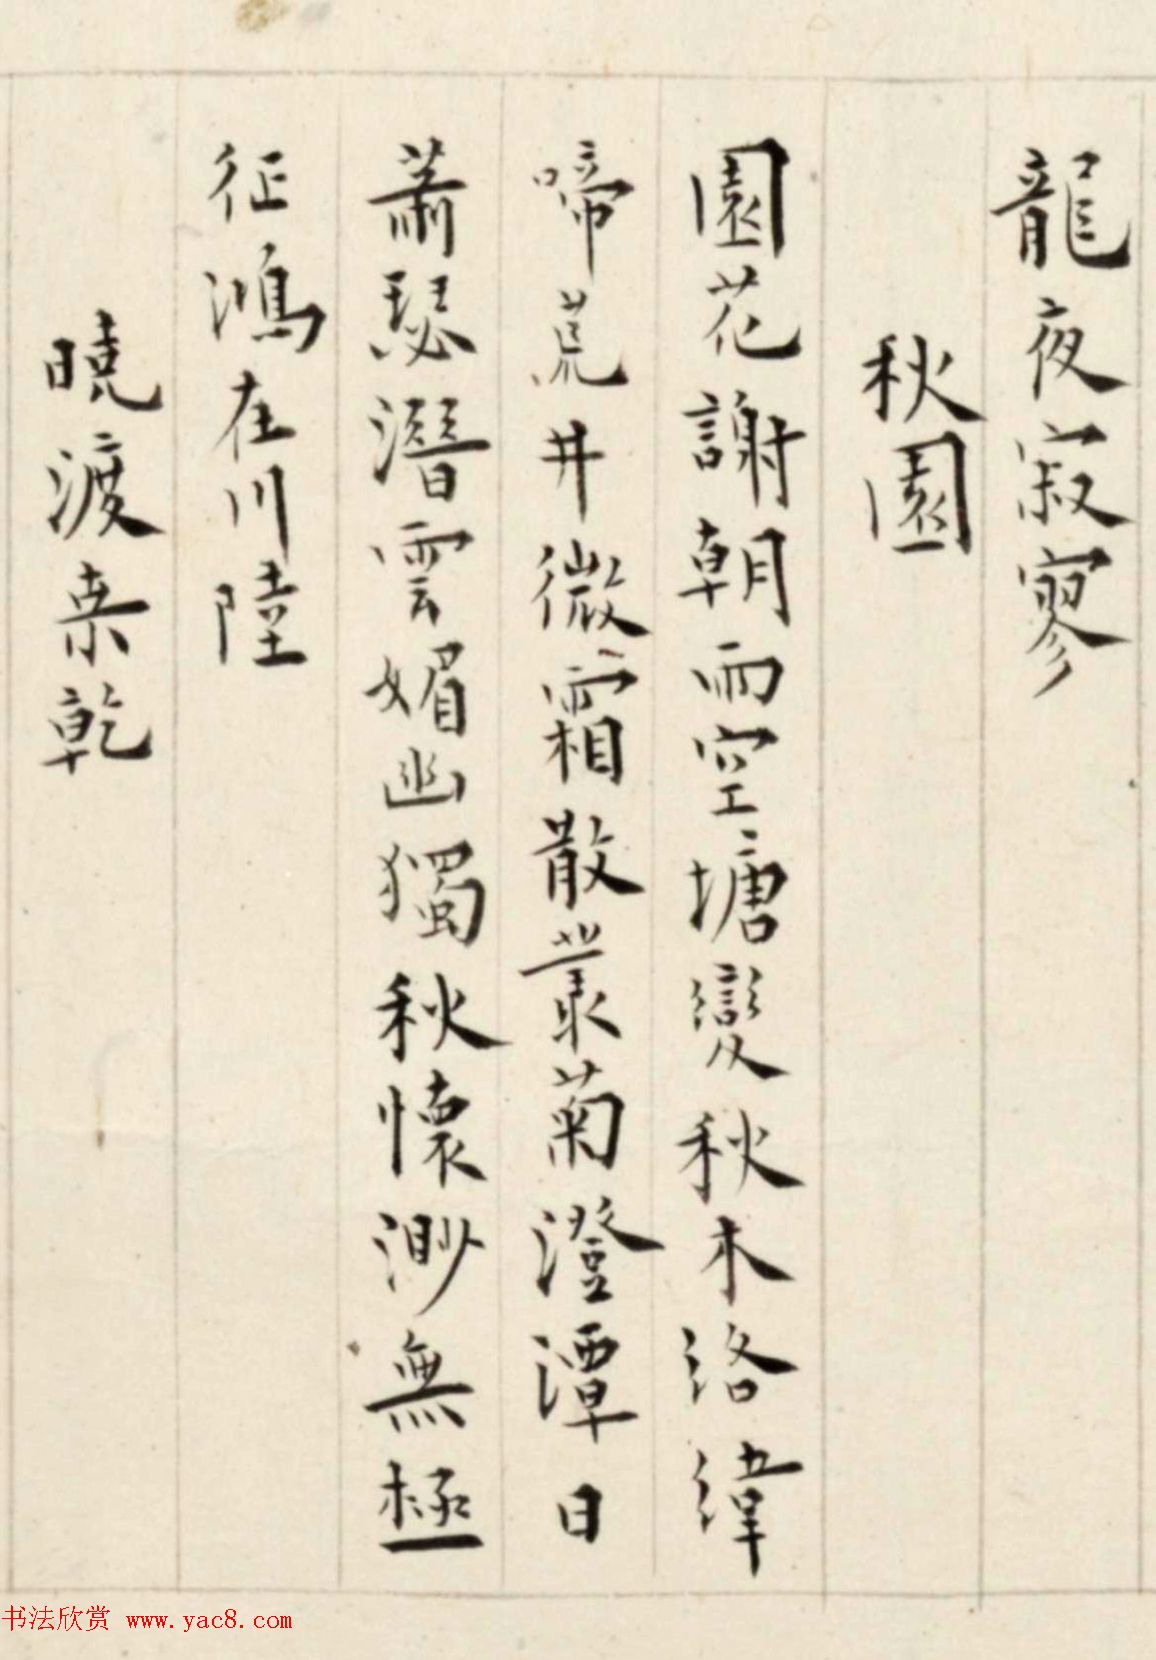 龍夜寂寥
秋園
園花謝朝雨空塘變秋木絡緯
啼荒井微霜散叢菊澄潭日
蕭瑟潛雲媚幽獨秋懷渺無極
征鴻在川陸
曉渡桑乾
书法欣赏 www.yac8.com